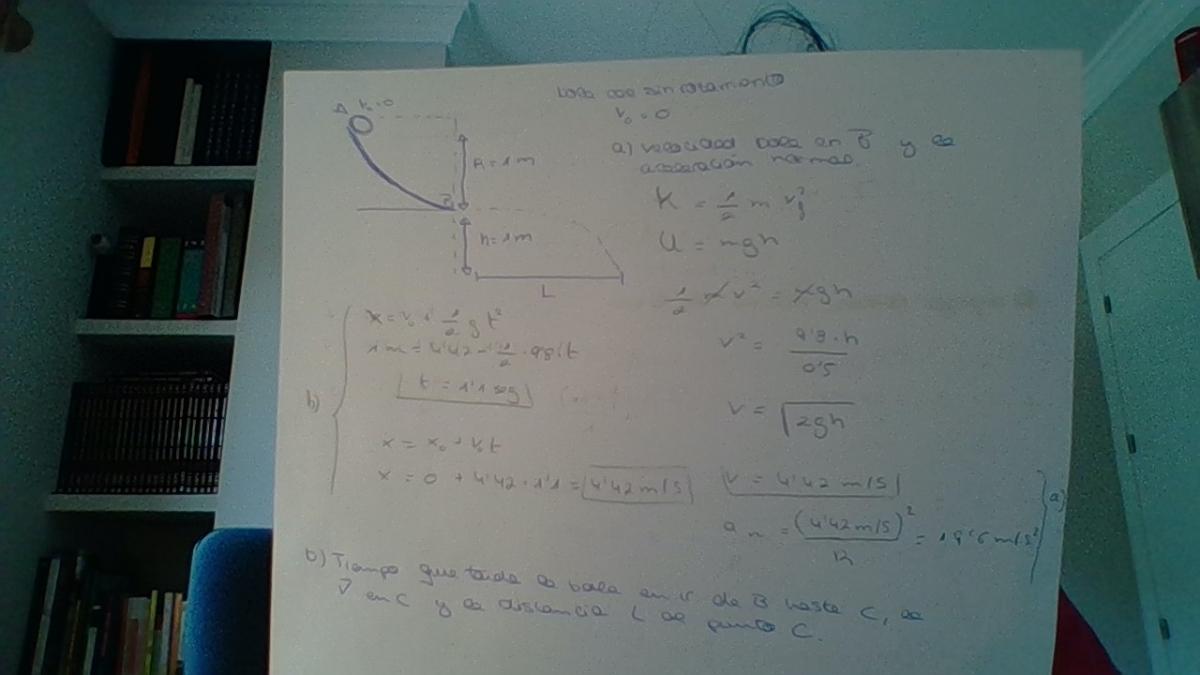 A V₀=0
R = 1m
B
h = 1m
L
bola cae sin rozamiento
V₀ = 0
a) velocidad bola en B y la
aceleración normal.
K = 1/2 m v²
U = mgh
1/2 m v² = mgh
v² = 9'8·h / 0'5
v = √2gh
v = 4'42 m/s
a n = (4'42 m/s)² / R = 19'6 m/s²
a)
b)
t = 1'1 seg
x = x₀ + v₀t
x = 0 + 4'42 · 1'1 = 4'42 m/s
b) Tiempo que tarda la bola en ir de B hasta C, la
v en C y la distancia L al punto C.